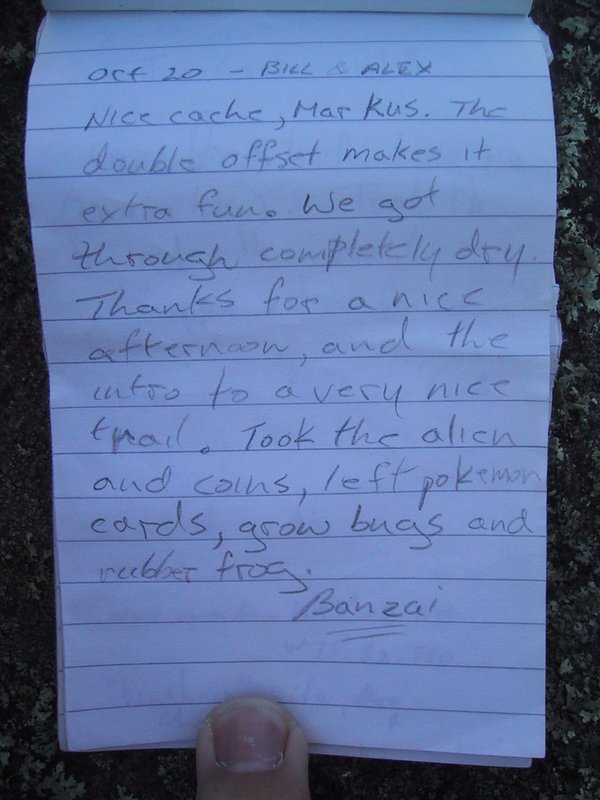 OCT 20 - BILL & ALEX
Nice cache, Mar Kus. The
double offset makes it
extra fun. We got
through completely dry.
Thanks for a nice
afternoon, and the
intro to a very nice
trail. Took the alien
and coins, left pokemon
cards, grow bugs and
rubber frog.
Banzai